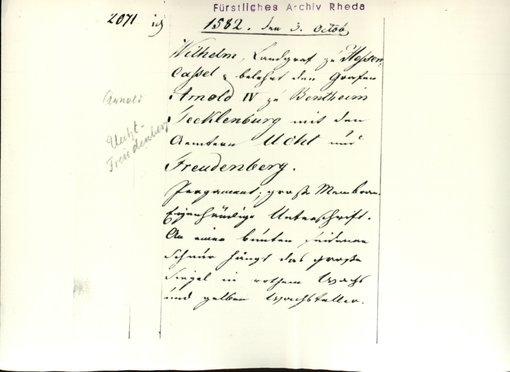 Fürstliches Archiv Rheda
2071
1582. den 3. Octob.
Wilhelm, Landgraf zu Hessen
Cassel, belehnt den Grafen
Arnold IV zu Bentheim
Tecklenburg mit den
Aemtern Ucht und
Freudenberg.
Pergament; große Membran.
Eigenhändige Unterschrift.
An einer bunten seidenen
Schnur hängt das große
Siegel in rothem Wachs
und gelben Wachsteller.
Arnold
Ucht-
Freudenberg